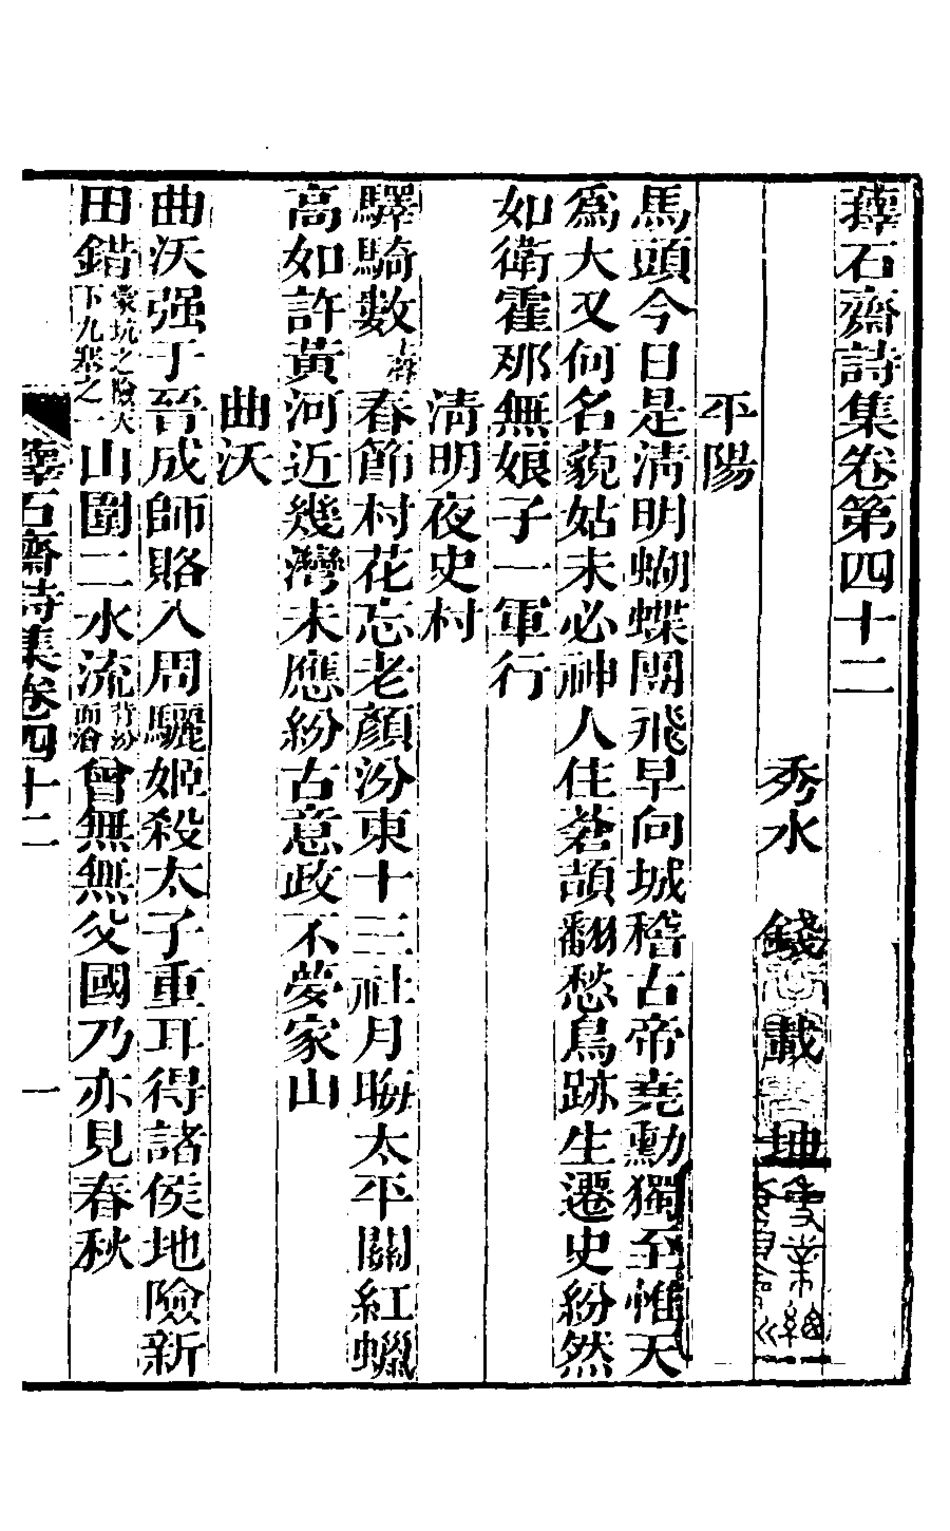 蘀石齋詩集卷第四十二
秀水 錢載 坤一
平陽
馬頭今日是淸明蝴蝶團飛早向城稽古帝堯勳獨至惟天
爲大又何名藐姑未必神人住蒼頡翻愁鳥跡生遷史紛然
如衛霍那無娘子一軍行
淸明夜史村
驛騎數上聲春節村花忘老顏汾東十三社月晦太平關紅蠟
高如許黃河近幾灣未應紛古意政不夢家山
曲沃
曲沃强于晉成師賂入周驪姬殺太子重耳得諸侯地險新
田錯蒙坑之險天下九塞之一山圍二水流背汾面澮曾無無父國乃亦見春秋
蘀石齋詩集卷四十二 一